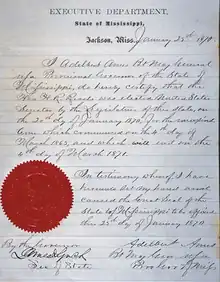 EXECUTIVE DEPARTMENT,
State of Mississippi,
Jackson, Miss. January 25th 1870
I Adelbert Ames Bt Maj General
USA Provisional Governor of the State of
Mississippi do hereby certify that the
Hon H R Revels was elected United States
Senator by the Legislature of this State on
the 20th day of January 1870 for the unexpired
term which commenced on the 4th day of
March 1865, and which will end on the
4th day of March 1871.
In testimony whereof I have
hereunto set my hand and
caused the Great Seal of the
State of Mississippi to be affixed
this 25th day of January
1870
By the Governor
Adelbert Ames
James Lynch
Bt Maj Gen USA
Sec of State
Pro Gov of Miss